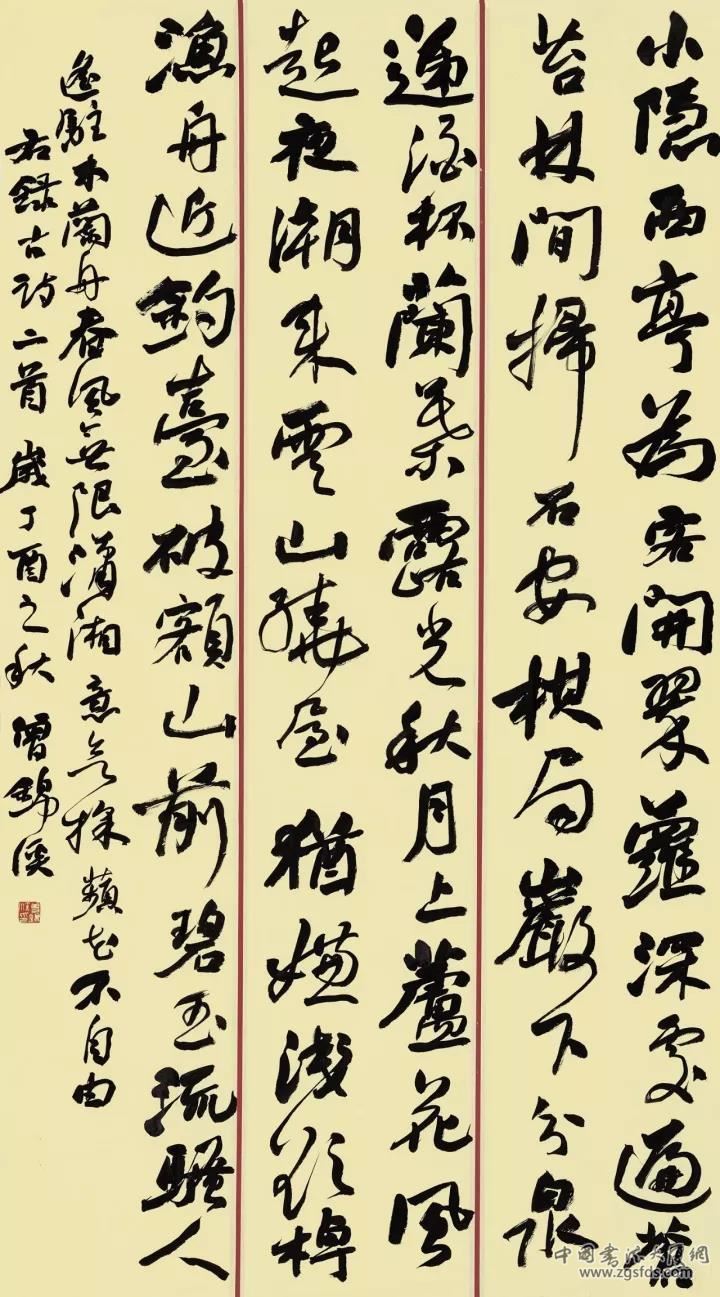 小隱西亭為客開翠蘿深處遍蒼
苔林間掃石安棋局巖下分泉
遞酒杯蘭葉露光秋月上蘆花風
起夜潮来雲山繞屋猶嫌淺欲棹
漁舟近釣臺破額山前碧玉流騷人
遙駐木蘭舟春風無限瀟湘意欲採蘋花不自由
右錄古詩二首 歲丁酉之秋 曾錦溪
www.zgsfds.com